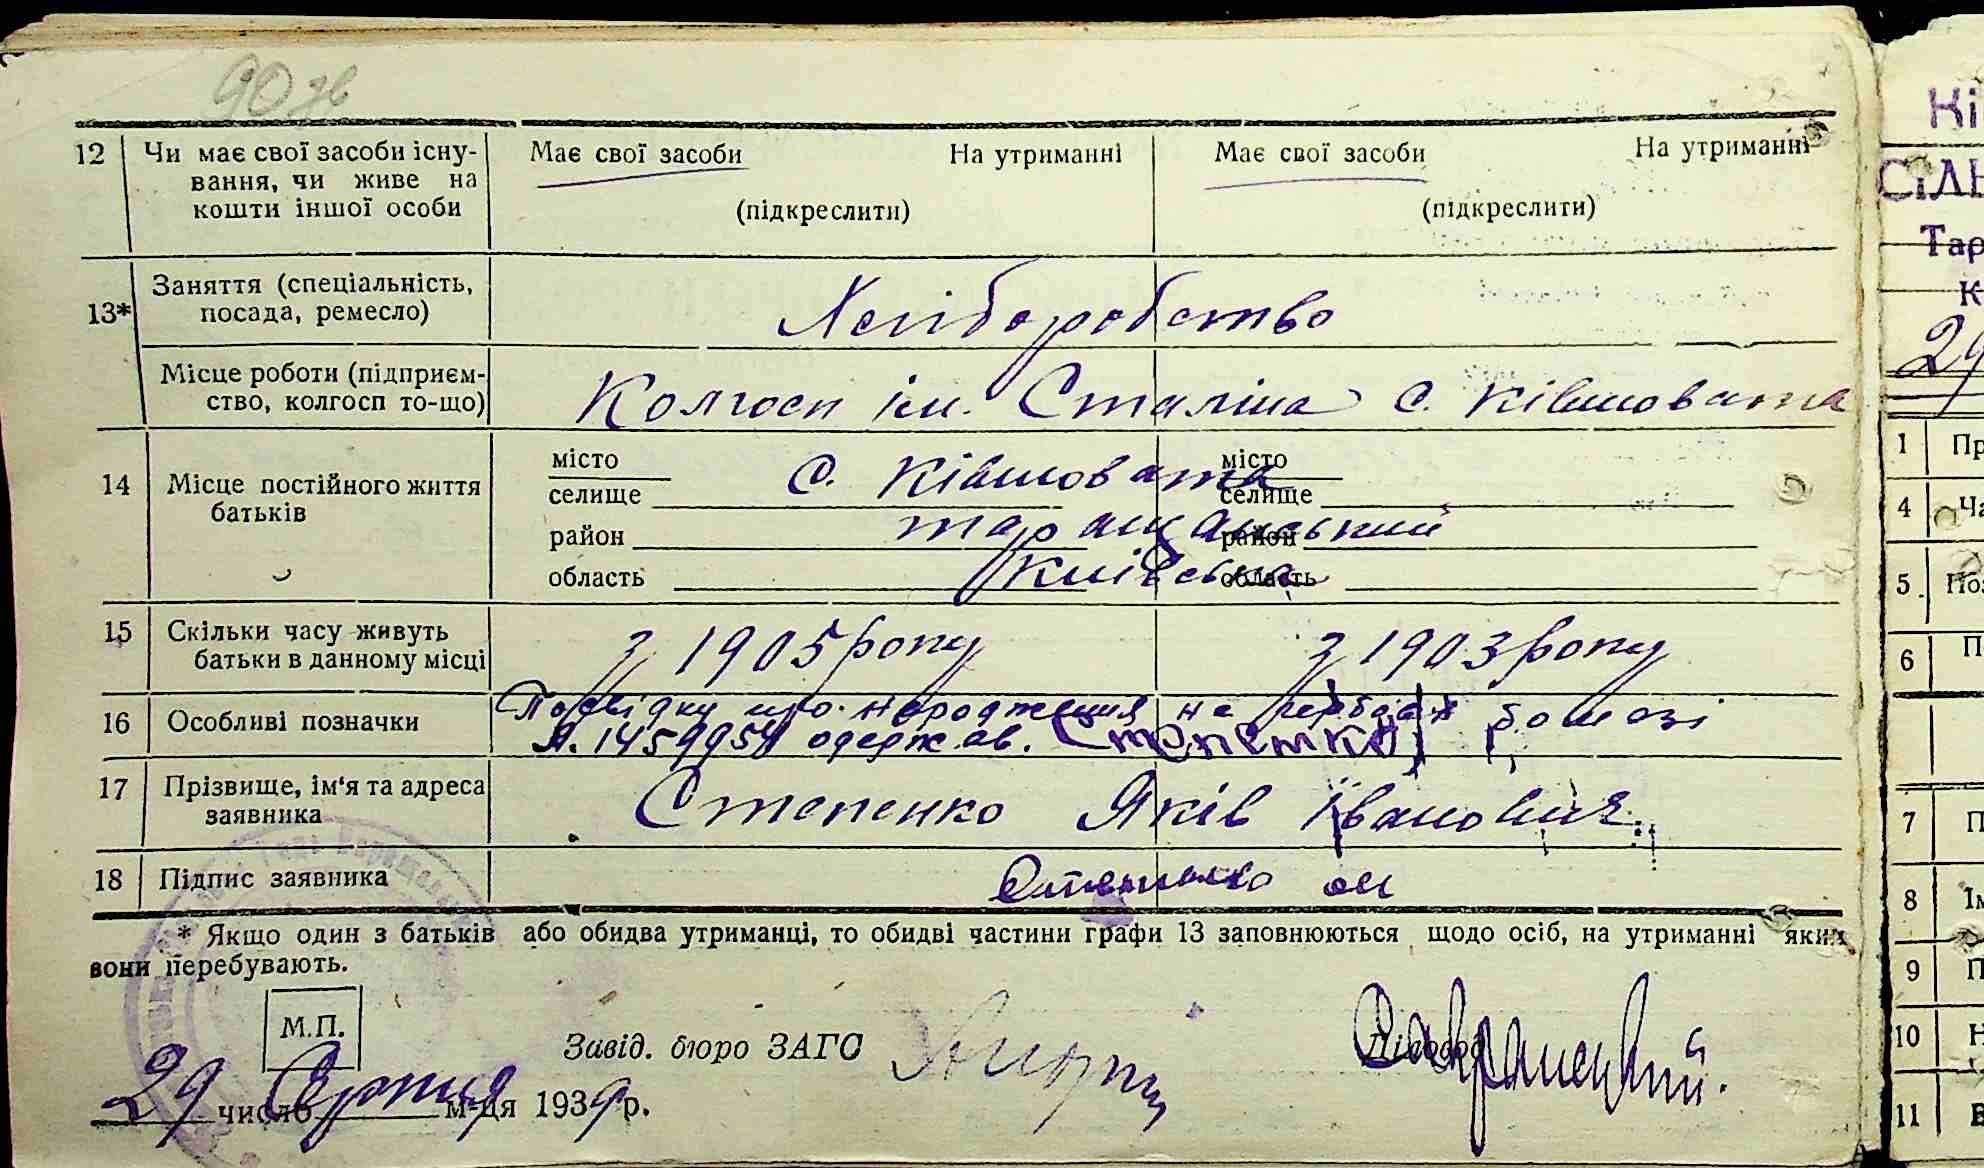 90 зв
12 Чи має свої засоби існу- Має свої засоби На утриманні Має свої засоби На утриманні
вання, чи живе на
кошти іншої особи (підкреслити) (підкреслити)
Заняття (спеціальність,
13* посада, ремесло) Хліборобство
Місце роботи (підприєм-
ство, колгосп то-що) Колгосп ім. Сталіна с. Ківшовата
місто місто
14 Місце постійного життя с. Ківшовата
батьків селище селище
район таращанський район
область Київська область
15 Скільки часу живуть
батьки в данному місці з 1905 року з 1903 року
Посвідку про народження на гербовій бомазі
16 Особливі позначки
А. 1459954 одержав. Степенко
17 Прізвище, ім'я та адреса
заявника Степенко Яків Іванович.
18 Підпис заявника Степенко
* Якщо один з батьків або обидва утриманці, то обидві частини графи 13 заповнюються щодо осіб, на утриманні яких
вони перебувають.
М.П.
Завід. бюро ЗАГС Діловод
29 число Серпня м-ця 1939 р.
Кі
СІЛЬ
Тар
К
29
1 Пр
4 Ча
5. Поз
6 П
7 П
8 Ім
9 П
10 Н
11 В